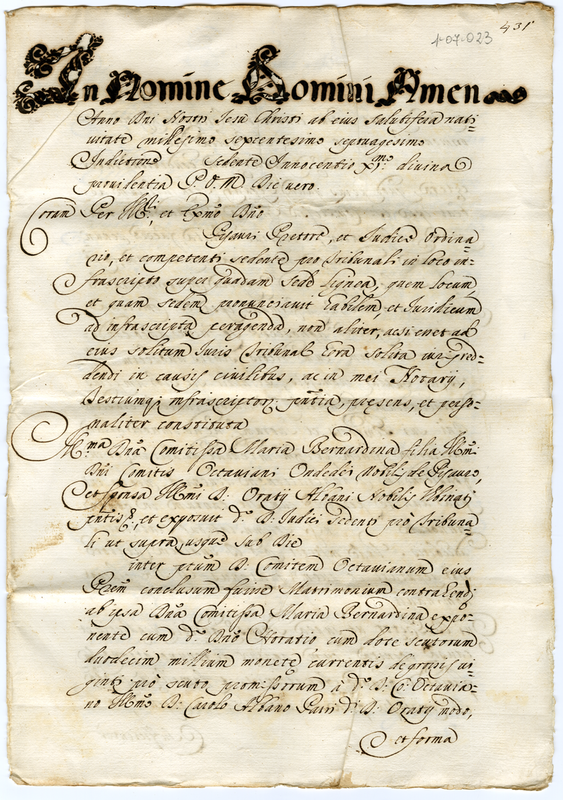 431
1-07-023
In Nomine Domini Amen
Anno Dni Nostri Jesu Christi ab eius salutifera nati-
vitate millesimo septentesimo septuagesimo
Indictione Sedente Innocentio Xmo divina
providentia P. O. M. Die vero
Coram Per Ill: et Exmo Dno
Pisauri Pretore, et Iudice Ordina-
rio, et competenti sedente pro tribunali in loco in-
frascripto super quadam sede lignea, quem locum
et quam sedem pronunciavit habilem et Iuridicum
ad infrascripta peragenda, non aliter, ac si esset ad
eius solitum Iuris tribunal hora solita iur pred-
dendi in causis civilibus, ac in mei Notarÿ,
testiumq; infrascriptor. pntia, presens, et perso-
naliter constituta
Illma Dna Comitissa Maria Bernardina filia Illmi
Dni Comitis Octaviani Ondedei Nobilis de Pisauro,
et sponsa Illmi D. Oratÿ Albani Nobilis Urbinat;
pntis, et exposuit do D. Iudici sedenti pro tribuna-
li ut supra, usque sub Die
inter ptum D. Comitem Octavianum eius
Prem conclusum fuisse Matrimonium contrahend;
ab ipsa Dna Comitissa Maria Bernardina expo-
nente cum do Dno Horatio cum dote scutorum
duodecim millium monete currentis de grossis vi-
ginti pro scuto promissorum a do D. Co: Octavia-
no Illmo D. Carolo Albano Patri di D. Oratÿ modo,
et forma